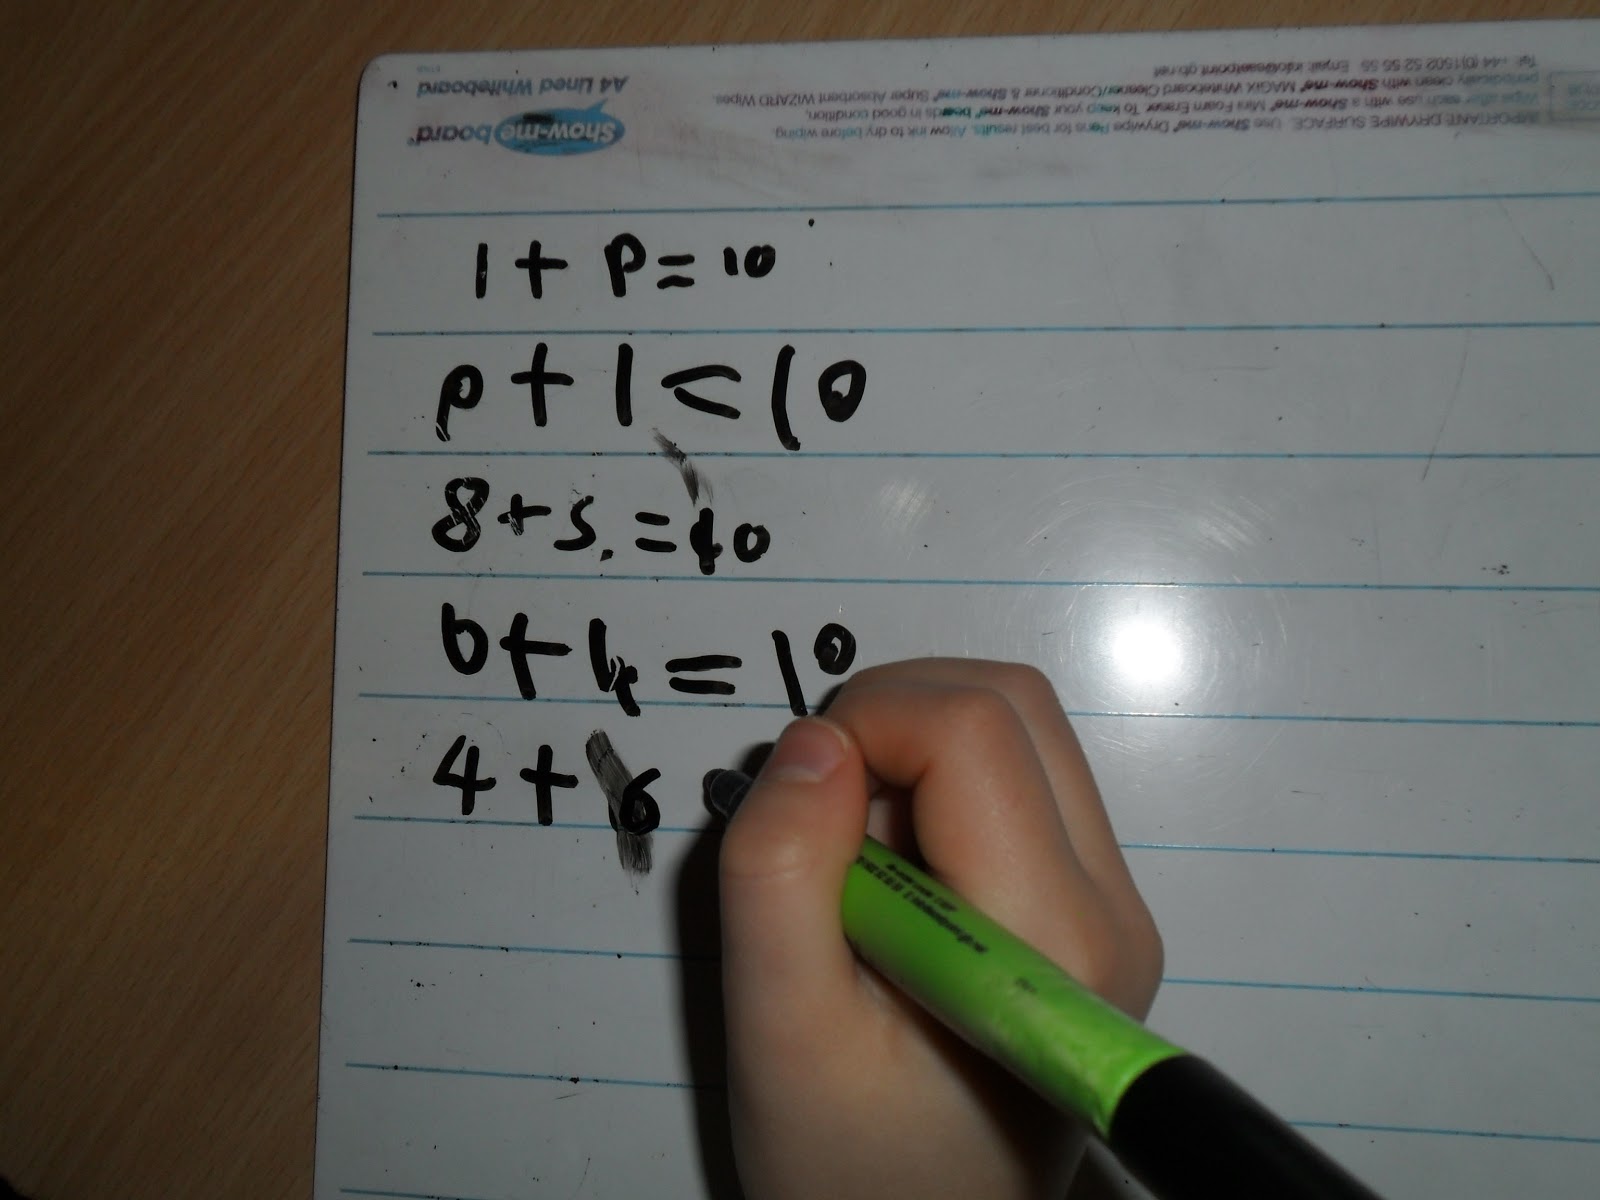 A4 Lined Whiteboard
Show-me board
IMPORTANT: DRYWIPE SURFACE. Use Show-me Drywipe Pens for best results. Allow ink to dry before wiping.
Wipe after each use with a Show-me Mini Foam Eraser. To keep your Show-me boards in good condition,
periodically clean with Show-me MAGIX Whiteboard Cleaner/Conditioner & Show-me Super Absorbent WIZARD Wipes.
1 + P = 10
p + 1 = 10
8 + S. = 10
6 + 4 = 10
4 + 6